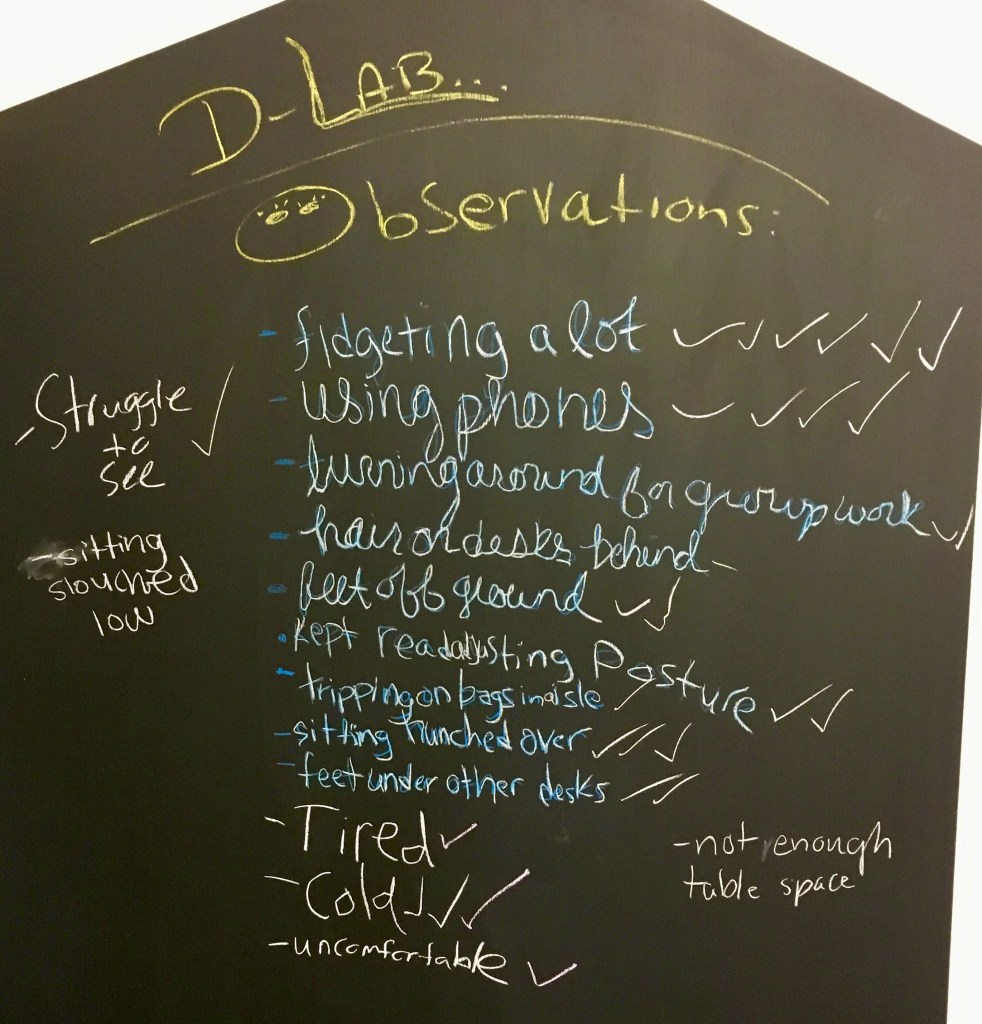 D-LAB...
Observations:
- fidgeting a lot ✓ ✓ ✓ ✓ ✓ ✓
- using phones ✓ ✓ ✓ ✓
- Struggle ✓
to
see
- turning around for group work ✓
- hair on desks behind -
- sitting
slouched
low
- feet off ground ✓ ✓
- kept readadjusting Posture ✓ ✓
- tripping on bags in aisle ✓
- sitting hunched over ✓ ✓ ✓
- feet under other desks ✓ ✓
- Tired ✓
- not enough
table space
- Cold ✓ ✓ ✓
- uncomfortable ✓